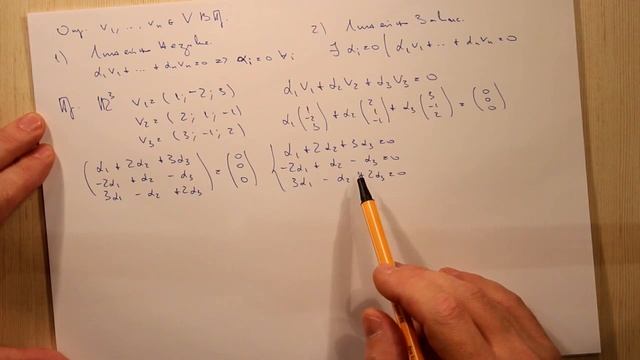 Опр. v₁, ... vₙ ∈ V ВП.
1) Линейн Незав.
α₁v₁ + ... + αₙvₙ = 0 => αᵢ = 0 ∀i
2) Линейн Завис.
∃ αᵢ = 0 | α₁v₁ + ... + αₙvₙ = 0
Пр. ℝ³ v₁ = (1; -2; 3)
v₂ = (2; 1; -1)
v₃ = (3; -1; 2)
α₁v₁ + α₂v₂ + α₃v₃ = 0
α₁(1 -2 3) + α₂(2 1 -1) + α₃(3 -1 2) = (0 0 0)
(α₁ + 2α₂ + 3α₃
-2α₁ + α₂ - α₃
3α₁ - α₂ + 2α₃) = (0 0 0)
{ α₁ + 2α₂ + 3α₃ = 0
-2α₁ + α₂ - α₃ = 0
3α₁ - α₂ + 2α₃ = 0